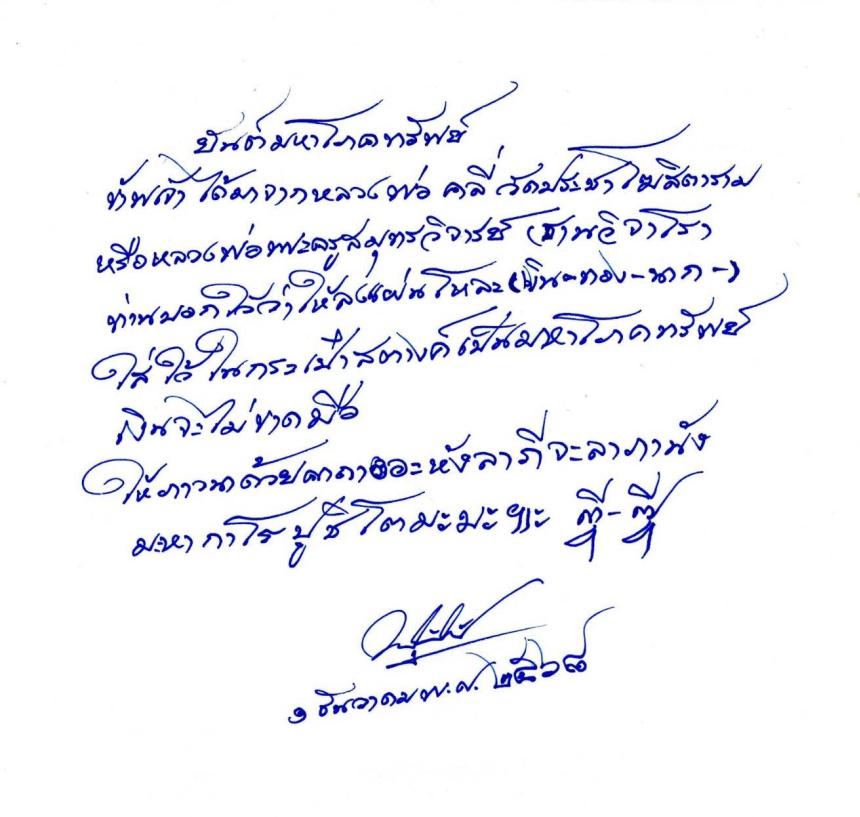 ยันต์มหาโภคทรัพย์
ข้าพเจ้าได้มาจากหลวงพ่อ คลี่ วัดประชาโฆสิตาราม
หรือหลวงพ่อพระครูสมุทรวิจารย์ (ชานวิจาโร)
ท่านบอกไว้ว่าให้ลงแผ่นโลหะ(เงิน-ทอง-นาก-)
ใส่ไว้ในกระเป๋าสตางค์เป็นมหาโภคทรัพย์
เงินจะไม่ขาดมือ
ให้ภาวนาด้วยคาถา อะหังลาภีจะลาภานัง
มะหากาโรปูชิโตมะมะ ฯะ
๑ ธันวาคม พ.ศ. ๒๕๖๘